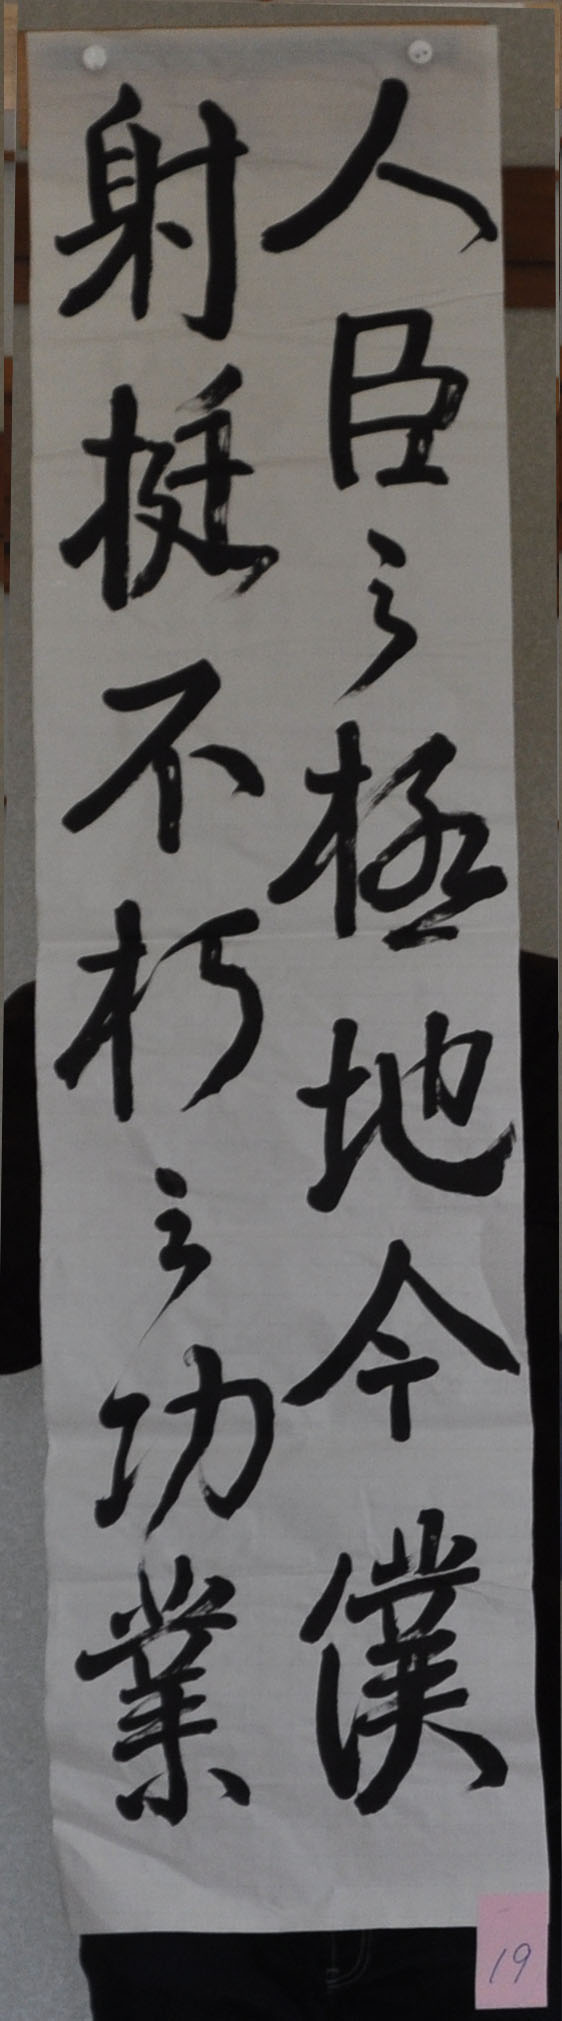 人臣之極地今僕
射挺不朽之功業
19